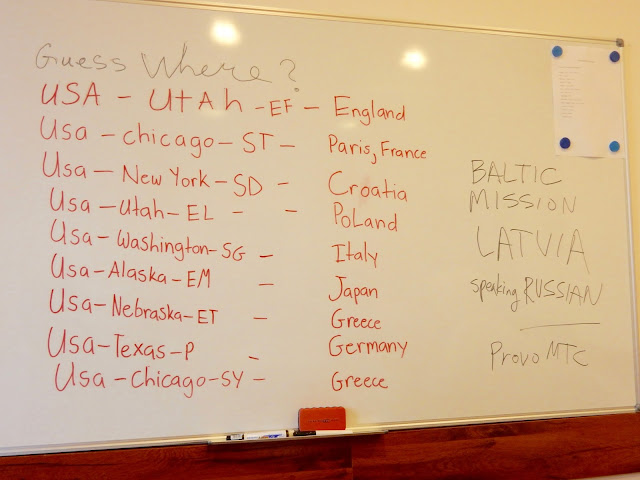 Guess Where?
USA - UtAh - EF - England
Usa - chicago - ST - Paris, France
Usa - New York - SD - Croatia
Usa - Utah - EL - - PoLand
Usa - Washington - SG - Italy
Usa - Alaska - EM Japan
Usa - Nebraska - ET - Greece
Usa - Texas - P - Germany
Usa - Chicago - SY - Greece
BALTIC
MISSION
LATVIA
speaking RUSSIAN
Provo MTC